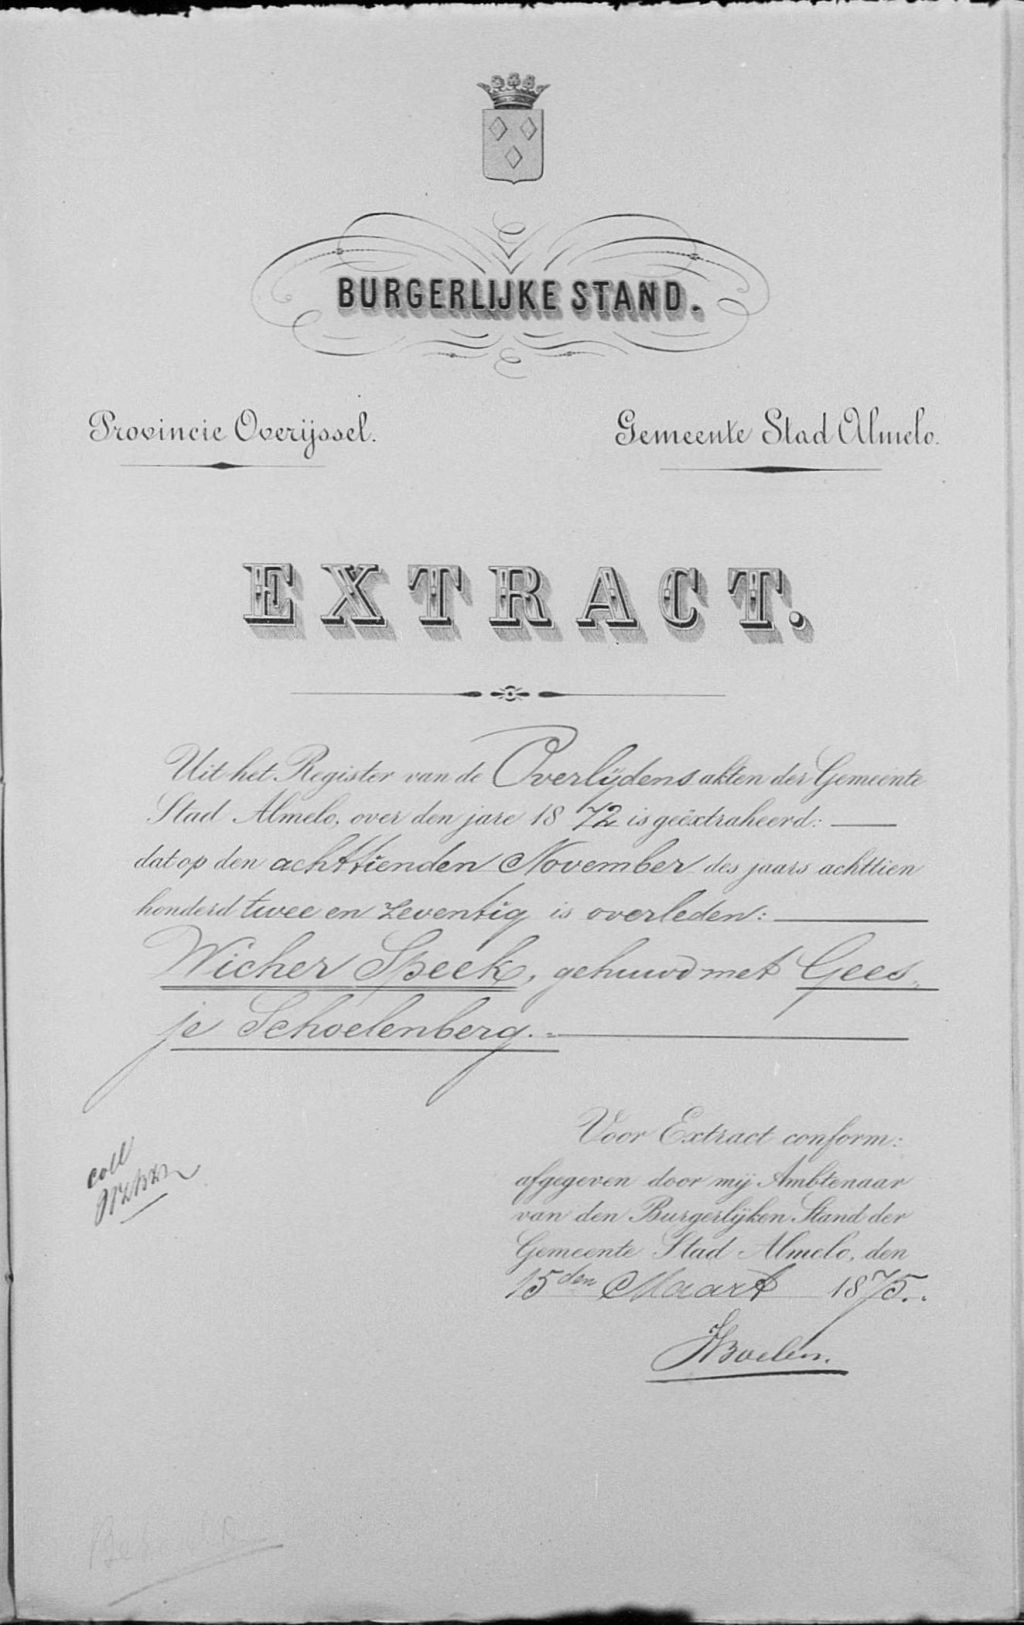 BURGERLIJKE STAND.
Provincie Overijssel.
Gemeente Stad Almelo.
EXTRACT.
Uit het Register van de Overlijdens akten der Gemeente
Stad Almelo, over den jare 1872 is geëxtraheerd:
dat op den achttienden November des jaars achttien
honderd twee en zeventig is overleden:
Wicher Speek, gehuwd met Gees„
je Schoelenberg.
Voor Extract conform:
afgegeven door mij Ambtenaar
van den Burgerlijken Stand der
Gemeente Stad Almelo, den
15den Maart 1875.
coll
HBoelen.